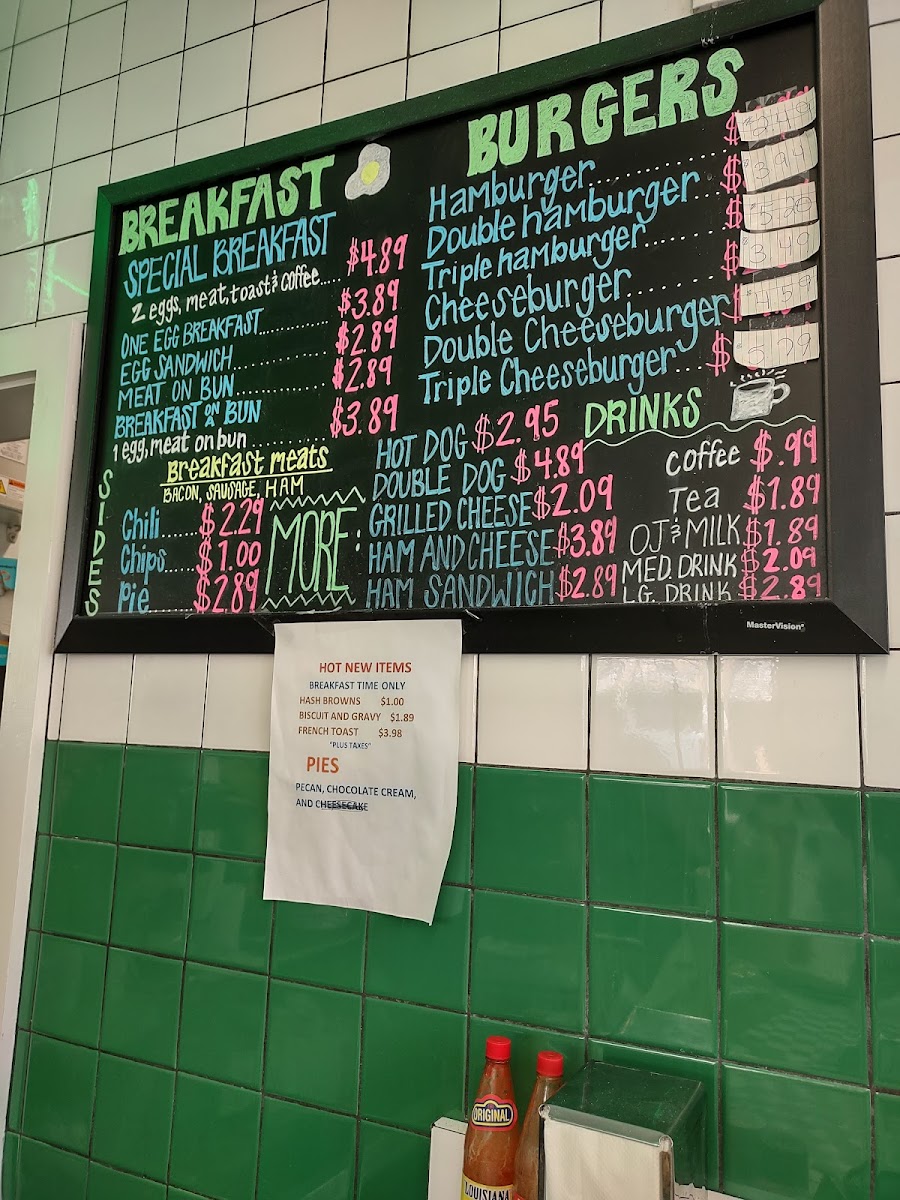 BREAKFAST
SPECIAL BREAKFAST $4.89
2 eggs, meat, toast & coffee.....
ONE EGG BREAKFAST............ $3.89
EGG SANDWICH............... $2.89
MEAT ON BUN............... $2.89
BREAKFAST ON A BUN $3.89
1 egg, meat on bun ...........
Breakfast meats
BACON, SAUSAGE, HAM
SIDES
Chili...... $2.29
Chips..... $1.00
Pie...... $2.89
BURGERS
Hamburger.................. $2.49
Double hamburger... $3.94
Triple hamburger....... $5.20
Cheeseburger........ $3.49
Double Cheeseburger $4.59
Triple Cheeseburger... $5.79
MORE:
HOT DOG $2.95
DOUBLE DOG $4.89
GRILLED CHEESE $2.09
HAM AND CHEESE $3.89
HAM SANDWICH $2.89
DRINKS
Coffee $.99
Tea $1.89
OJ & MILK $1.89
MED. DRINK $2.09
LG. DRINK $2.89
MasterVision
HOT NEW ITEMS
BREAKFAST TIME ONLY
HASH BROWNS $1.00
BISCUIT AND GRAVY $1.89
FRENCH TOAST $3.98
"PLUS TAXES"
PIES
PECAN, CHOCOLATE CREAM,
AND CHEESECAKE
ORIGINAL
LOUISIANA